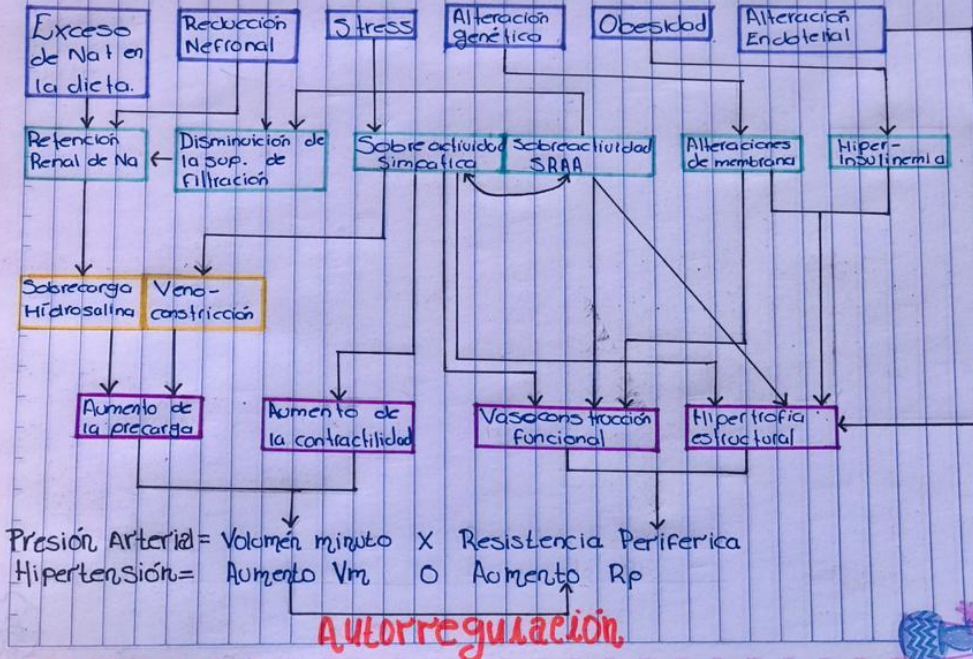 Exceso
de Na+ en
la dieta.
Reducción
Nefronal
Stress
Alteración
genética
Obesidad
Alteración
Endoterial
Retención
Renal de Na
Disminuición de
la sup. de
Filtración
Sobreactividad
Simpatica
Sobreactividad
SRAA
Alteraciones
de membrana
Hiper-
Insulinemia
Sobrecarga
Hidrosalina
Veno-
constricción
Aumento de
la precarga
Aumento de
la contractilidad
Vasoconstrucción
funcional
Hipertrofia
estructural
Presión Arterial = Volumén minuto X Resistencia Periferica
Hipertensión = Aumento Vm O Aumento Rp
Autorregulación